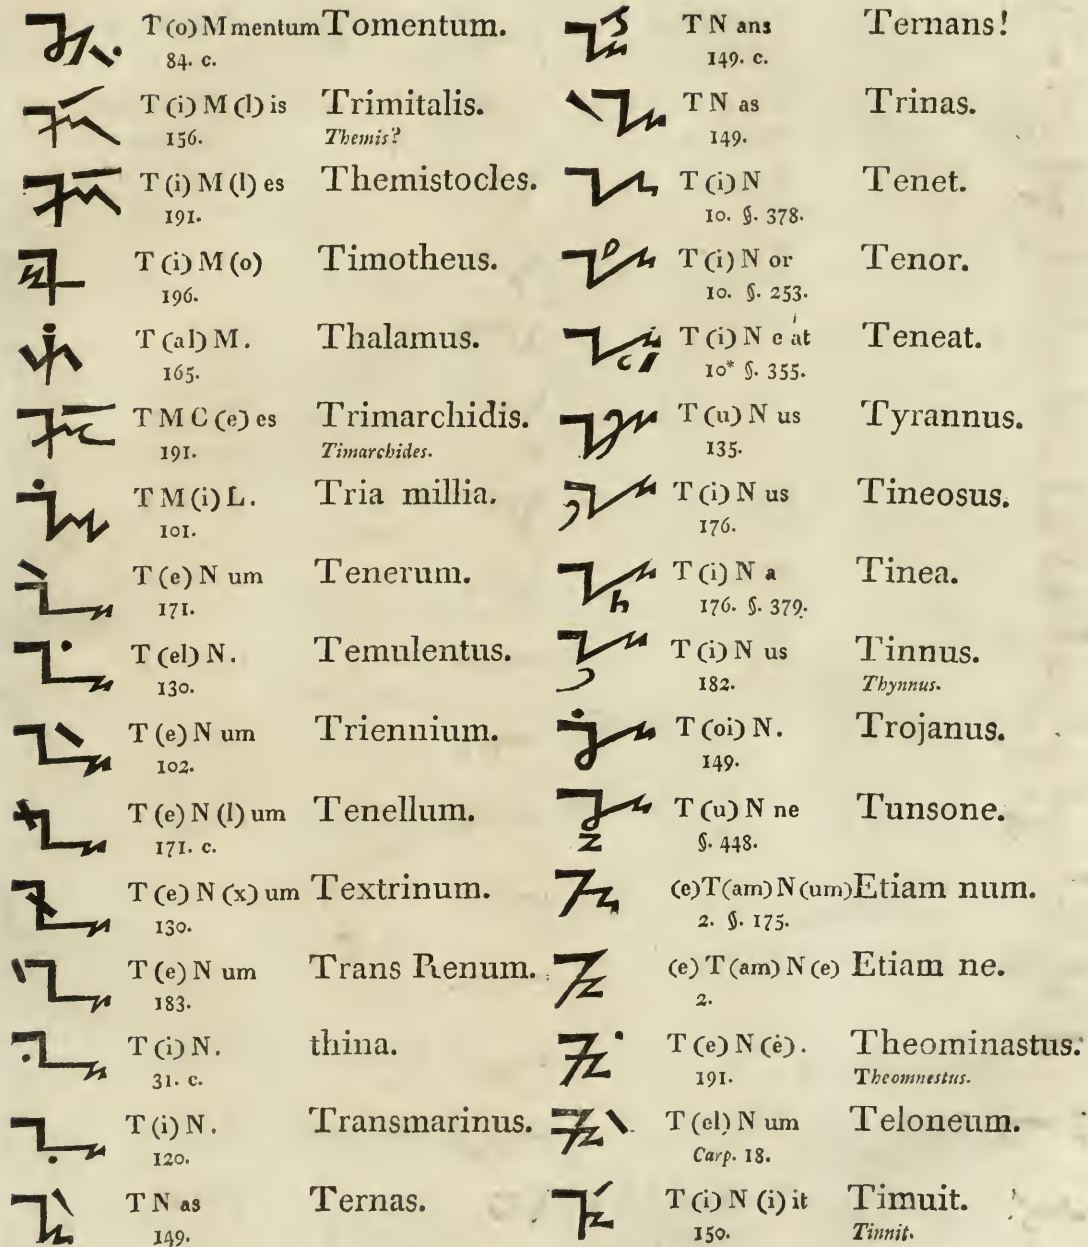 T (o) M mentum Tomentum.
84. c.
T (i) M (l) is Trimitalis.
156. Themis?
T (i) M (l) es Themistocles.
191.
T (i) M (o) Timotheus.
196.
T (al) M. Thalamus.
165.
T M C (e) es Trimarchidis.
191. Timarchides.
T M (i) L. Tria millia.
101.
T (e) N um Tenerum.
171.
T (el) N. Temulentus.
130.
T (e) N um Triennium.
102.
T (e) N (l) um Tenellum.
171. c.
T (e) N (x) um Textrinum.
130.
T (e) N um Trans Renum.
183.
T (i) N. thina.
31. c.
T (i) N. Transmarinus.
120.
T N as Ternas.
149.
T N ans Ternans!
149. c.
T N as Trinas.
149.
T (i) N Tenet.
10. §. 378.
T (i) N or Tenor.
10. §. 253.
T (i) N e at Teneat.
10* §. 355.
T (u) N us Tyrannus.
135.
T (i) N us Tineosus.
176.
T (i) N a Tinea.
176. §. 379.
T (i) N us Tinnus.
182. Thynnus.
T (oi) N. Trojanus.
149.
T (u) N ne Tunsone.
§. 448.
(e) T (am) N (um) Etiam num.
2. §. 175.
(e) T (am) N (e) Etiam ne.
2.
T (e) N (ė). Theominastus.
191. Theomnestus.
T (el) N um Teloneum.
Carp. 18.
T (i) N (i) it Timuit.
150. Tinnit.